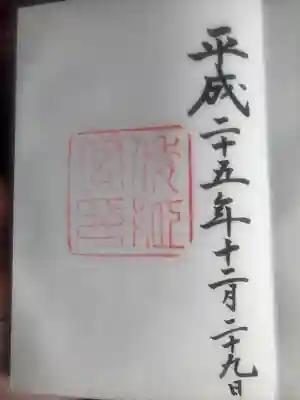 平成二十五年十二月二十九日